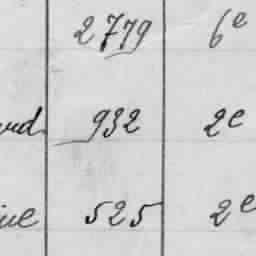 2779 6e
932 2e
525 2e